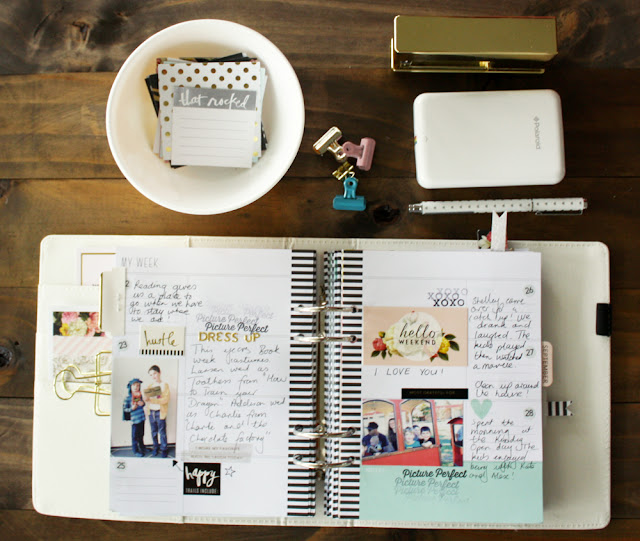 that rocked
Polaroid
MY WEEK
Reading gives
us a place to
go when we have
to stay where
we are.
Picture Perfect
Picture Perfect
DRESS UP
This years Book
Week Costumes
wed as
Toothless from 'How
to Train your
Dragon'
as 'Charlie from
'Charlie and the
Chocolate Factory'
23
hustle
25
happy
XOXO
XOXO
hello
WEEKEND
I LOVE YOU!
Picture Perfect
Picture Perfect
Picture Perfect
26
Shelley came
over for a
catch up! We
drank and
laughed. The
kids played
then watched
a movie.
27
Clean up around
the house!
28
Spent the
morning at
the
Open day. The
kids enjoyed
being with Kate
and